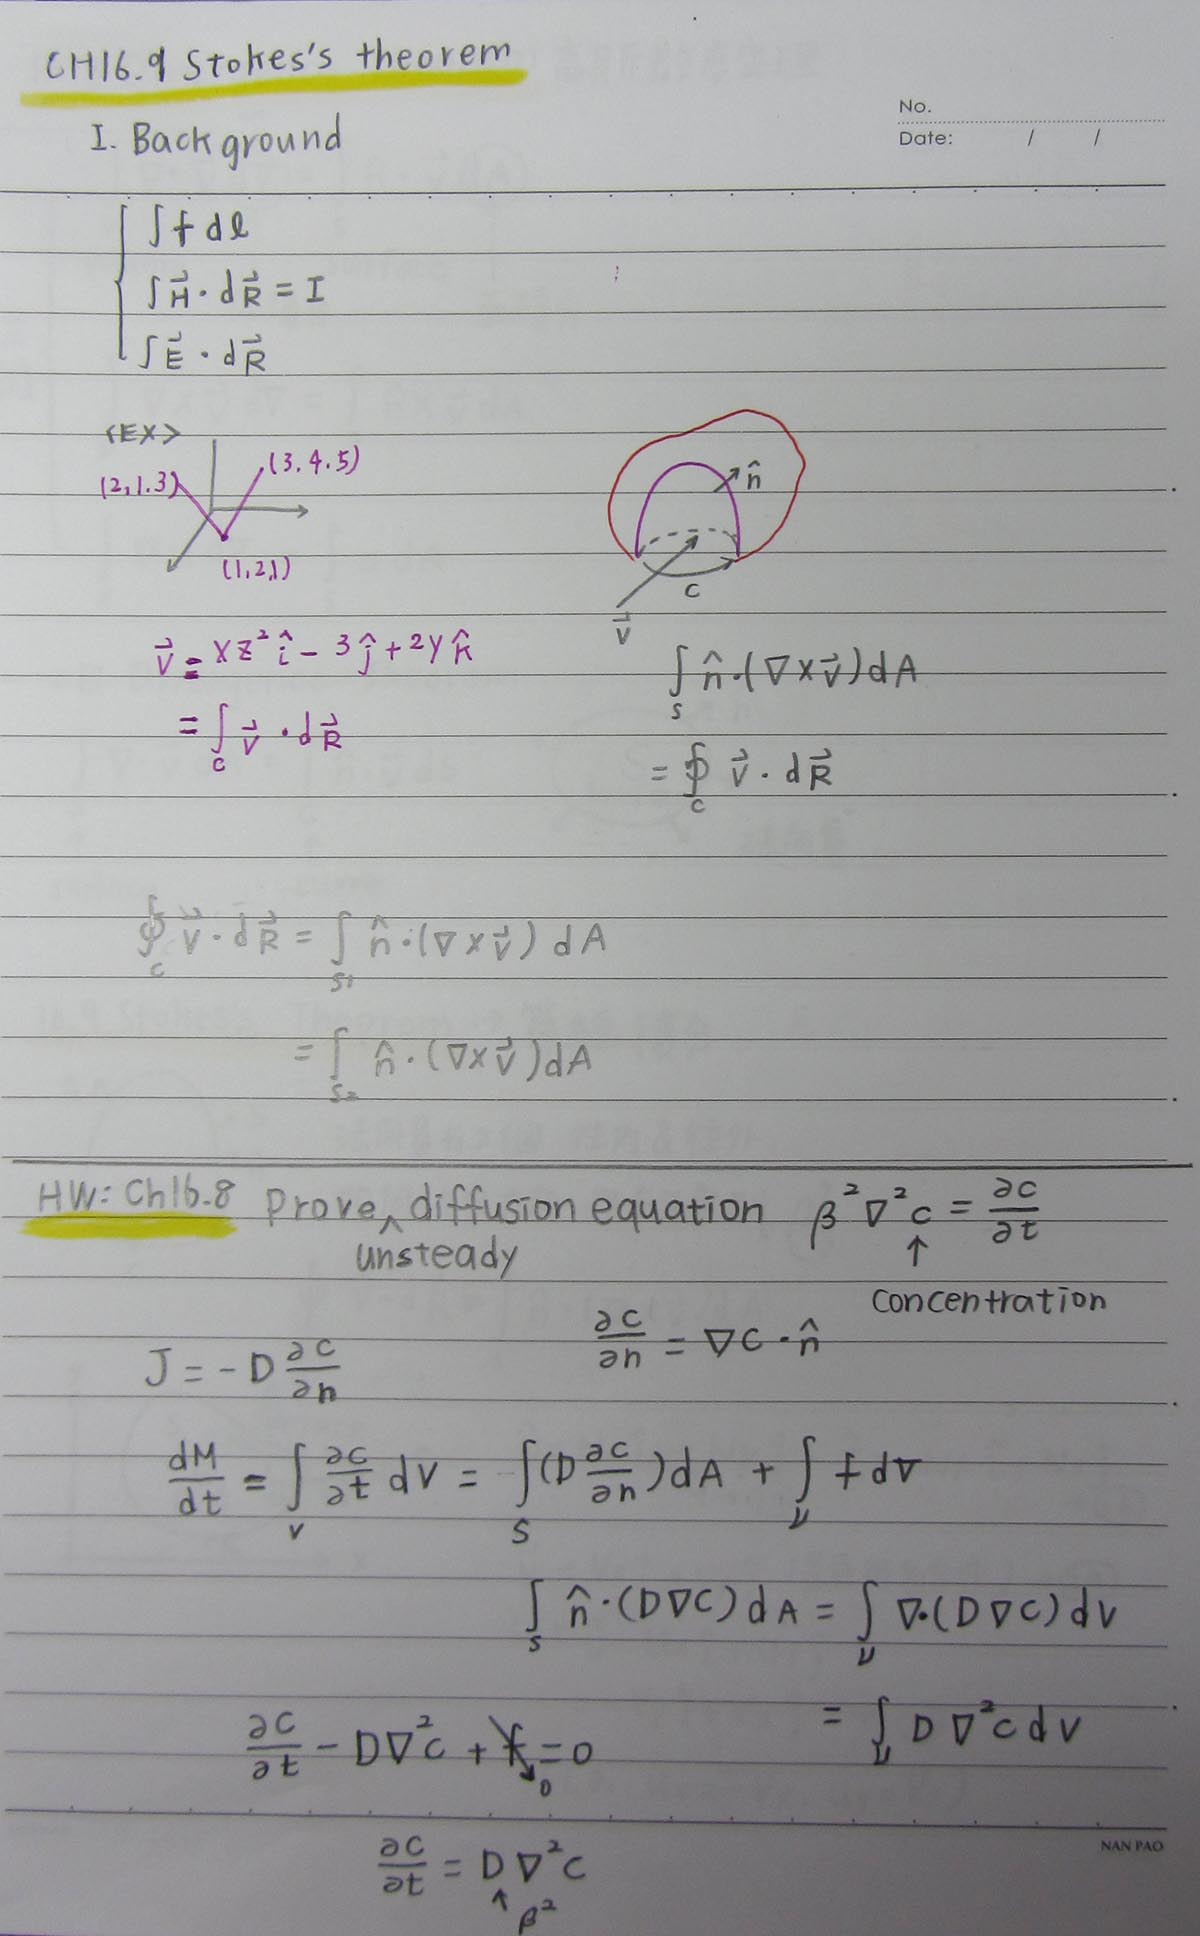 CH16.9 Stokes's theorem
No.
Date: / /
I. Background
∫f dl
∫H⃗·dR⃗ = I
∫E⃗·dR⃗
<EX>
(2,1.3)
(3.4.5)
(1,2,1)
n̂
C
V⃗
V⃗ = xz² î - 3ĵ + 2y k̂
= ∫_C V⃗·dR⃗
∫_S n̂·(∇×V⃗)dA
= ∮_C V⃗·dR⃗
∮_C V⃗·dR⃗ = ∫_S1 n̂·(∇×V⃗) dA
= ∫_S2 n̂·(∇×V⃗)dA
HW: Ch16.8 Prove ^ diffusion equation β²∇²c = ∂c/∂t
unsteady
↑
concentration
J = -D ∂c/∂n
∂c/∂n = ∇c·n̂
dM/dt = ∫_V ∂c/∂t dV = ∫_S (D ∂c/∂n)dA + ∫_V f dV
∫_S n̂·(D∇C)dA = ∫_V ∇·(D∇C)dV
= ∫_V D∇²c dV
∂c/∂t - D∇²c + f = 0
0
∂c/∂t = D∇²c
↑ β²
NAN PAO